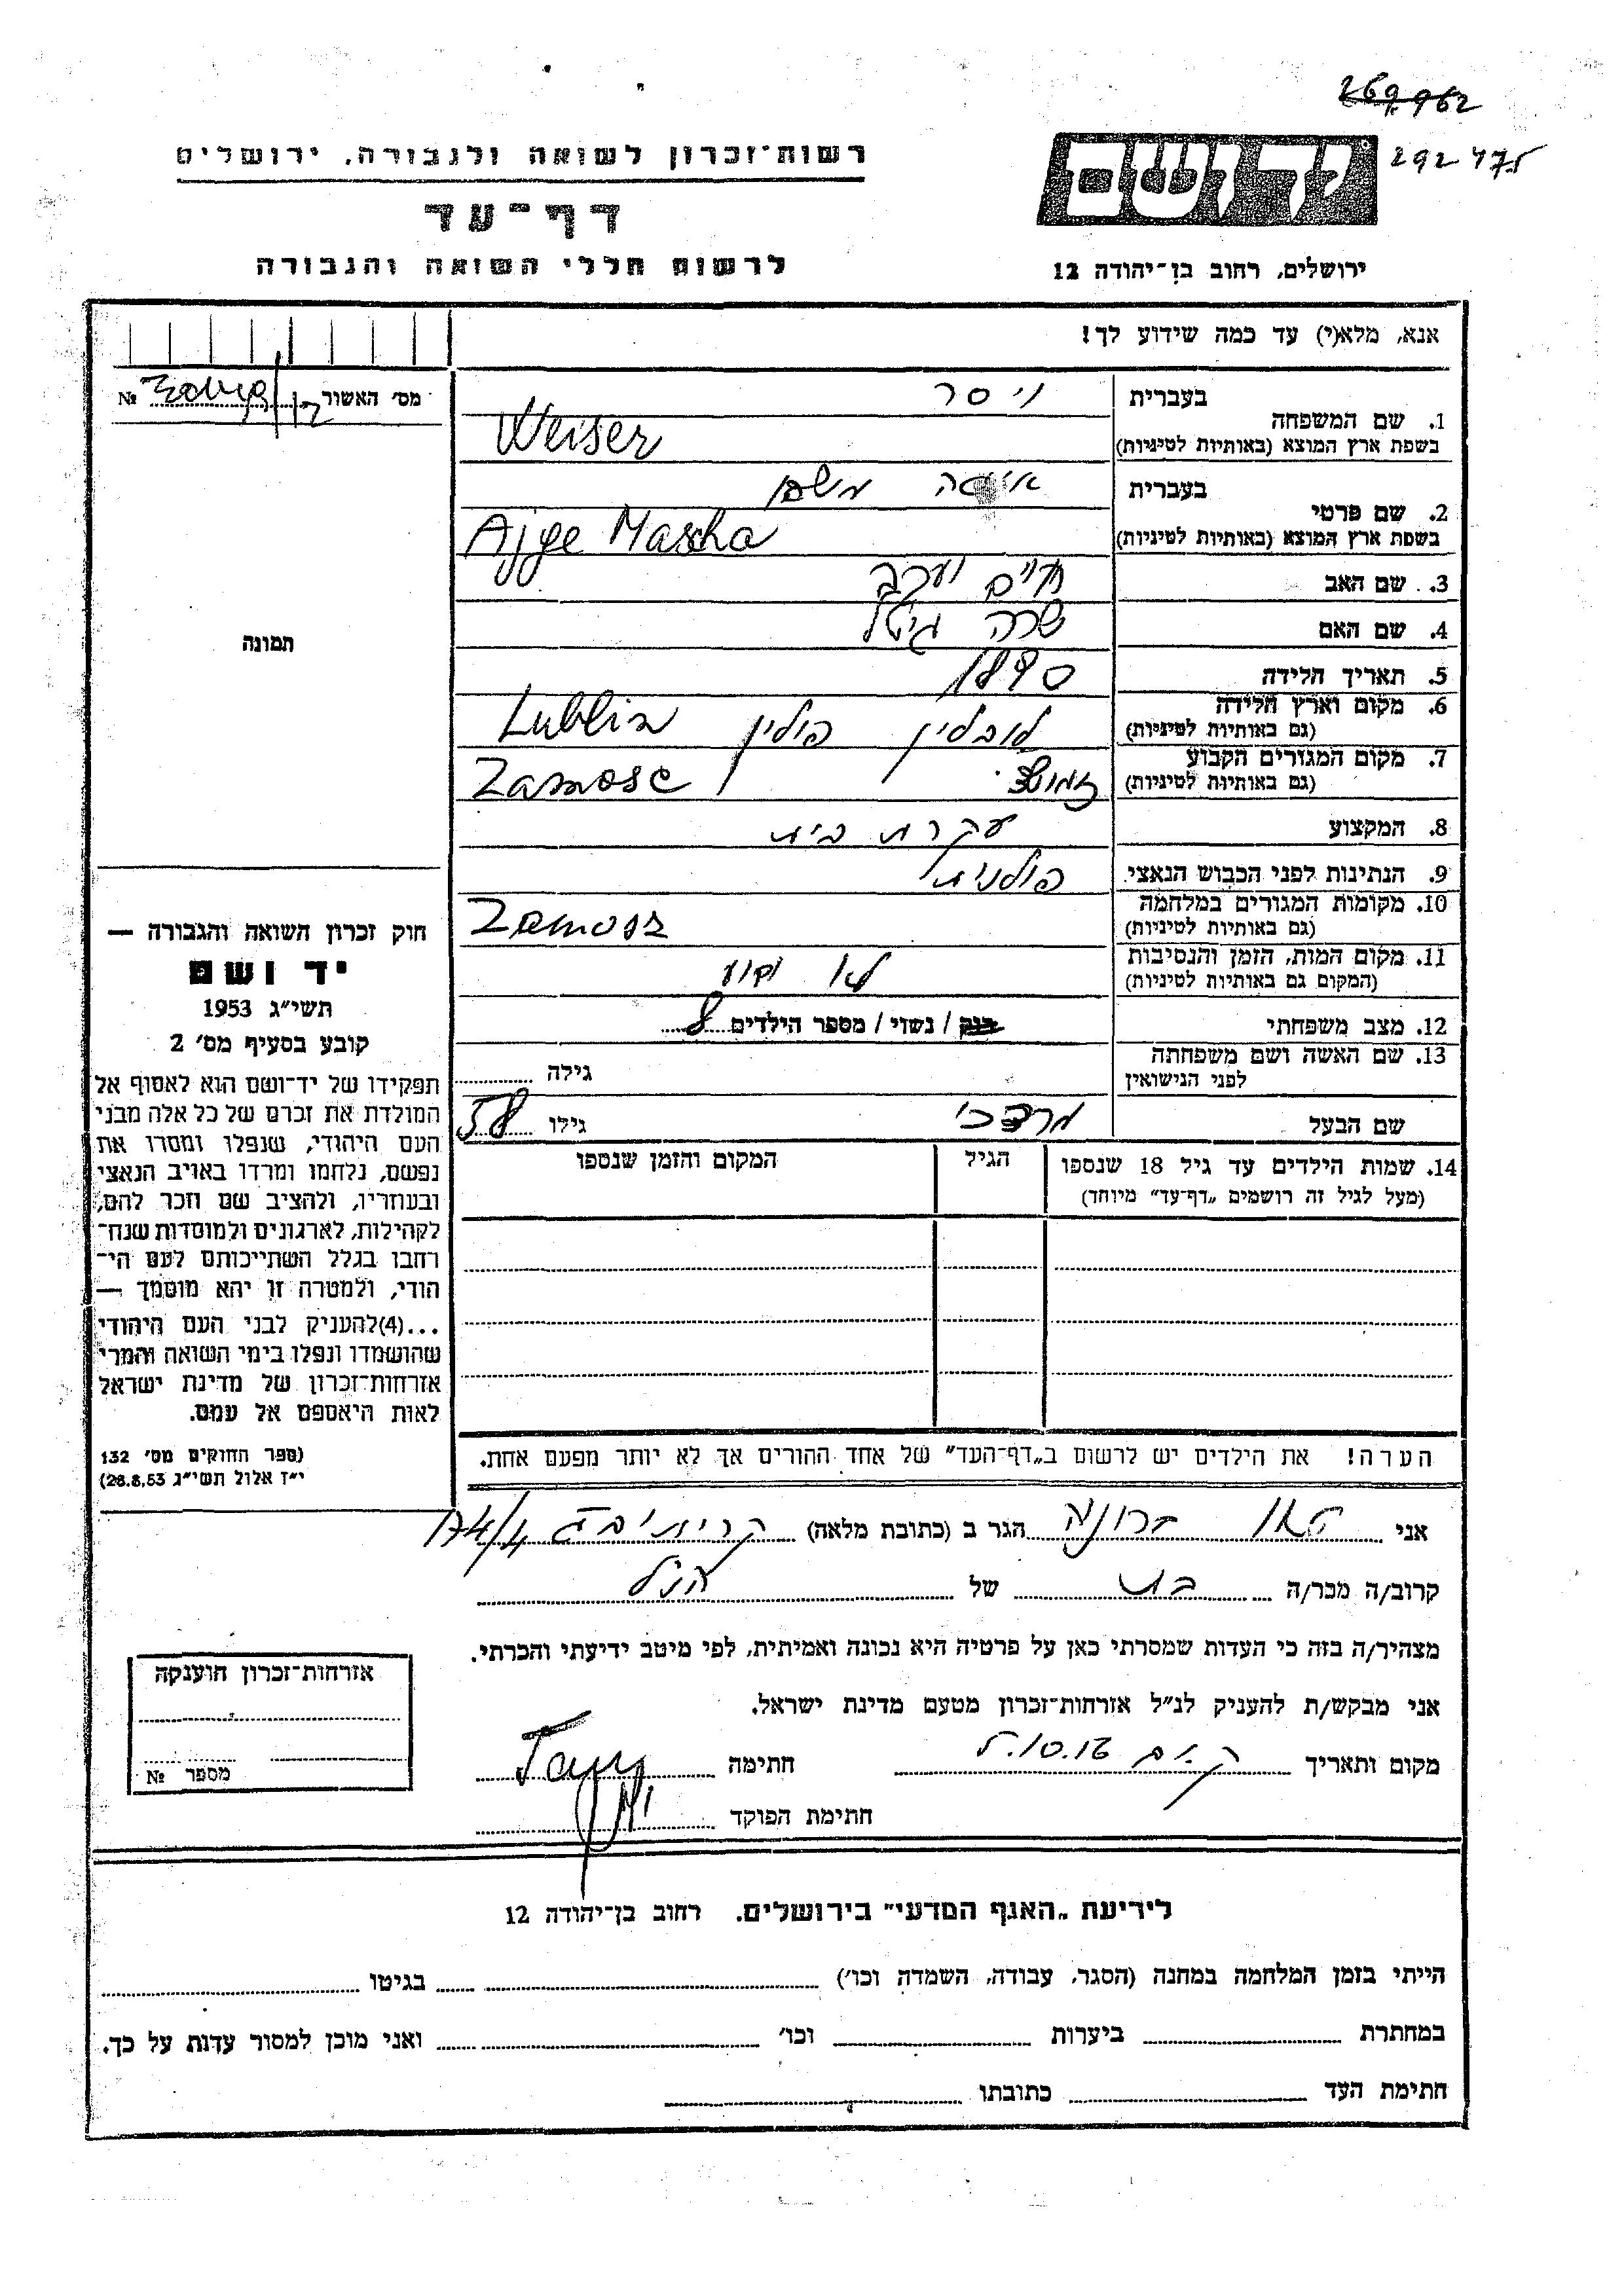 269.962
292475
יד ושם
ירושלים, רחוב בן־יהודה 12
רשות־זכרון לשואה ולגבורה, ירושלים
דף־עד
לרשום חללי השואה והגבורה
אנא, מלא(י) עד כמה שידוע לך!
מס׳ האשור № 
1. שם המשפחה בעברית ויסר
בשפת ארץ המוצא (באותיות לטיניות) Weiser
2. שם פרטי בעברית משה
בשפת ארץ המוצא (באותיות לטיניות) Ajge Mascha
3. שם האב חיים יעקב
4. שם האם שרה גיטל
5. תאריך הלידה 1890
6. מקום וארץ הלידה (גם באותיות לטיניות) לובלין פולין Lublin
7. מקום המגורים הקבוע (גם באותיות לטיניות) Zamosc
8. המקצוע עקרת בית
9. הנתינות לפני הכבוש הנאצי פולנית
10. מקומות המגורים במלחמה (גם באותיות לטיניות) Zamosz
11. מקום המות, הזמן והנסיבות (המקום גם באותיות לטיניות) לא ידוע
12. מצב משפחתי רווק / נשוי / מספר הילדים 8
13. שם האשה ושם משפחתה לפני הנישואין גילה
שם הבעל מרדכי גילו 58
14. שמות הילדים עד גיל 18 שנספו הגיל המקום והזמן שנספו
(מעל לגיל זה רושמים „דף־עד״ מיוחד)
הערה! את הילדים יש לרשום ב„דף־העד״ של אחד ההורים אך לא יותר מפעם אחת.
תמונה
חוק זכרון השואה והגבורה —
יד ושם
תשי״ג 1953
קובע בסעיף מס׳ 2
תפקידו של יד־ושם הוא לאסוף אל
המולדת את זכרם של כל אלה מבני
העם היהודי, שנפלו ומסרו את
נפשם, נלחמו ומרדו באויב הנאצי
ובעוזריו, ולהציב שם וזכר להם,
לקהילות, לארגונים ולמוסדות שנח־
רחבו בגלל השתייכותם לעם הי־
הודי, ולמטרה זו יהא מוסמך —
...(4)להעניק לבני העם היהודי
שהושמדו ונפלו בימי השואה והמרי
אזרחות־זכרון של מדינת ישראל
לאות היאספם אל עמם.
(ספר החוקים מס׳ 132
י״ז אלול תשי״ג 28.8.53)
אני ברוניה הגר ב (כתובת מלאה) 174/4
קרוב/ה מכר/ה בת של הנ״ל
מצהיר/ה בזה כי העדות שמסרתי כאן על פרטיה היא נכונה ואמיתית, לפי מיטב ידיעתי והכרתי.
אני מבקש/ת להעניק לנ״ל אזרחות־זכרון מטעם מדינת ישראל.
מקום ותאריך חתימה
חתימת הפוקד
אזרחות־זכרון הוענקה
מספר №
לידיעת „האגף המדעי״ בירושלים. רחוב בן־יהודה 12
הייתי בזמן המלחמה במחנה (הסגר, עבודה, השמדה וכו׳) בגיטו
במחתרת ביערות וכו׳ ואני מוכן למסור עדות על כך.
חתימת העד כתובתו